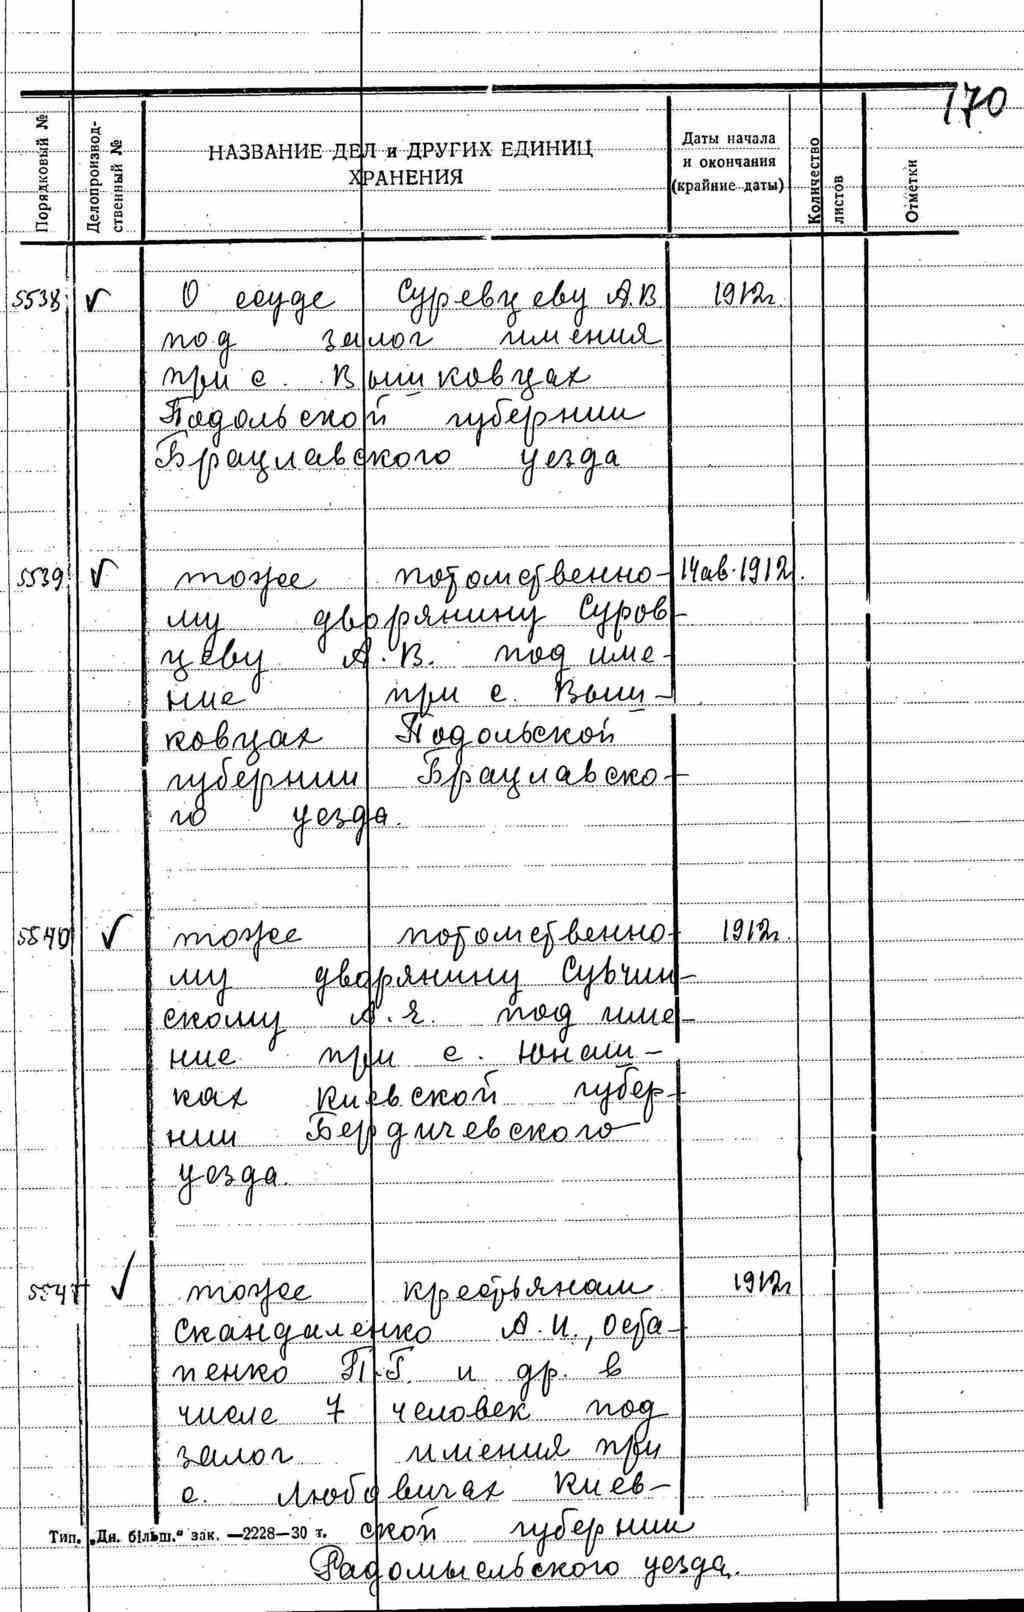 170
Порядковый №
Делопроизвод-
ственный №
НАЗВАНИЕ ДЕЛ и ДРУГИХ ЕДИНИЦ
ХРАНЕНИЯ
Даты начала
и окончания
(крайние даты)
Количество
листов
Отметки
5538 √ О ссуде Суревцеву А.В. 1912г.
под залог имения
при с. Вышковцах
Подольской губернии
Брацлавского уезда
5539 √ тоже потомственно- 14 ав. 1912г.
му дворянину Суров-
цеву А.В. под име-
ние при с. Выш-
ковцах Подольской
губернии Брацлавско-
го уезда.
5540 √ тоже потомственно- 1912г.
му дворянину Сувчин-
скому А.Я. под име-
ние при с. Юнаш-
ках Киевской губер-
нии Бердичевского
уезда.
5541 √ тоже крестьянам 1912г
Скандаленко А.И., Оста-
пенко П.Г. и др. в
числе 7 человек под
залог имения при
с. Любовичах Киев-
ской губернии
Радомысльского уезда.
Тип. „Дн. більш." зак. —2228—30 т.